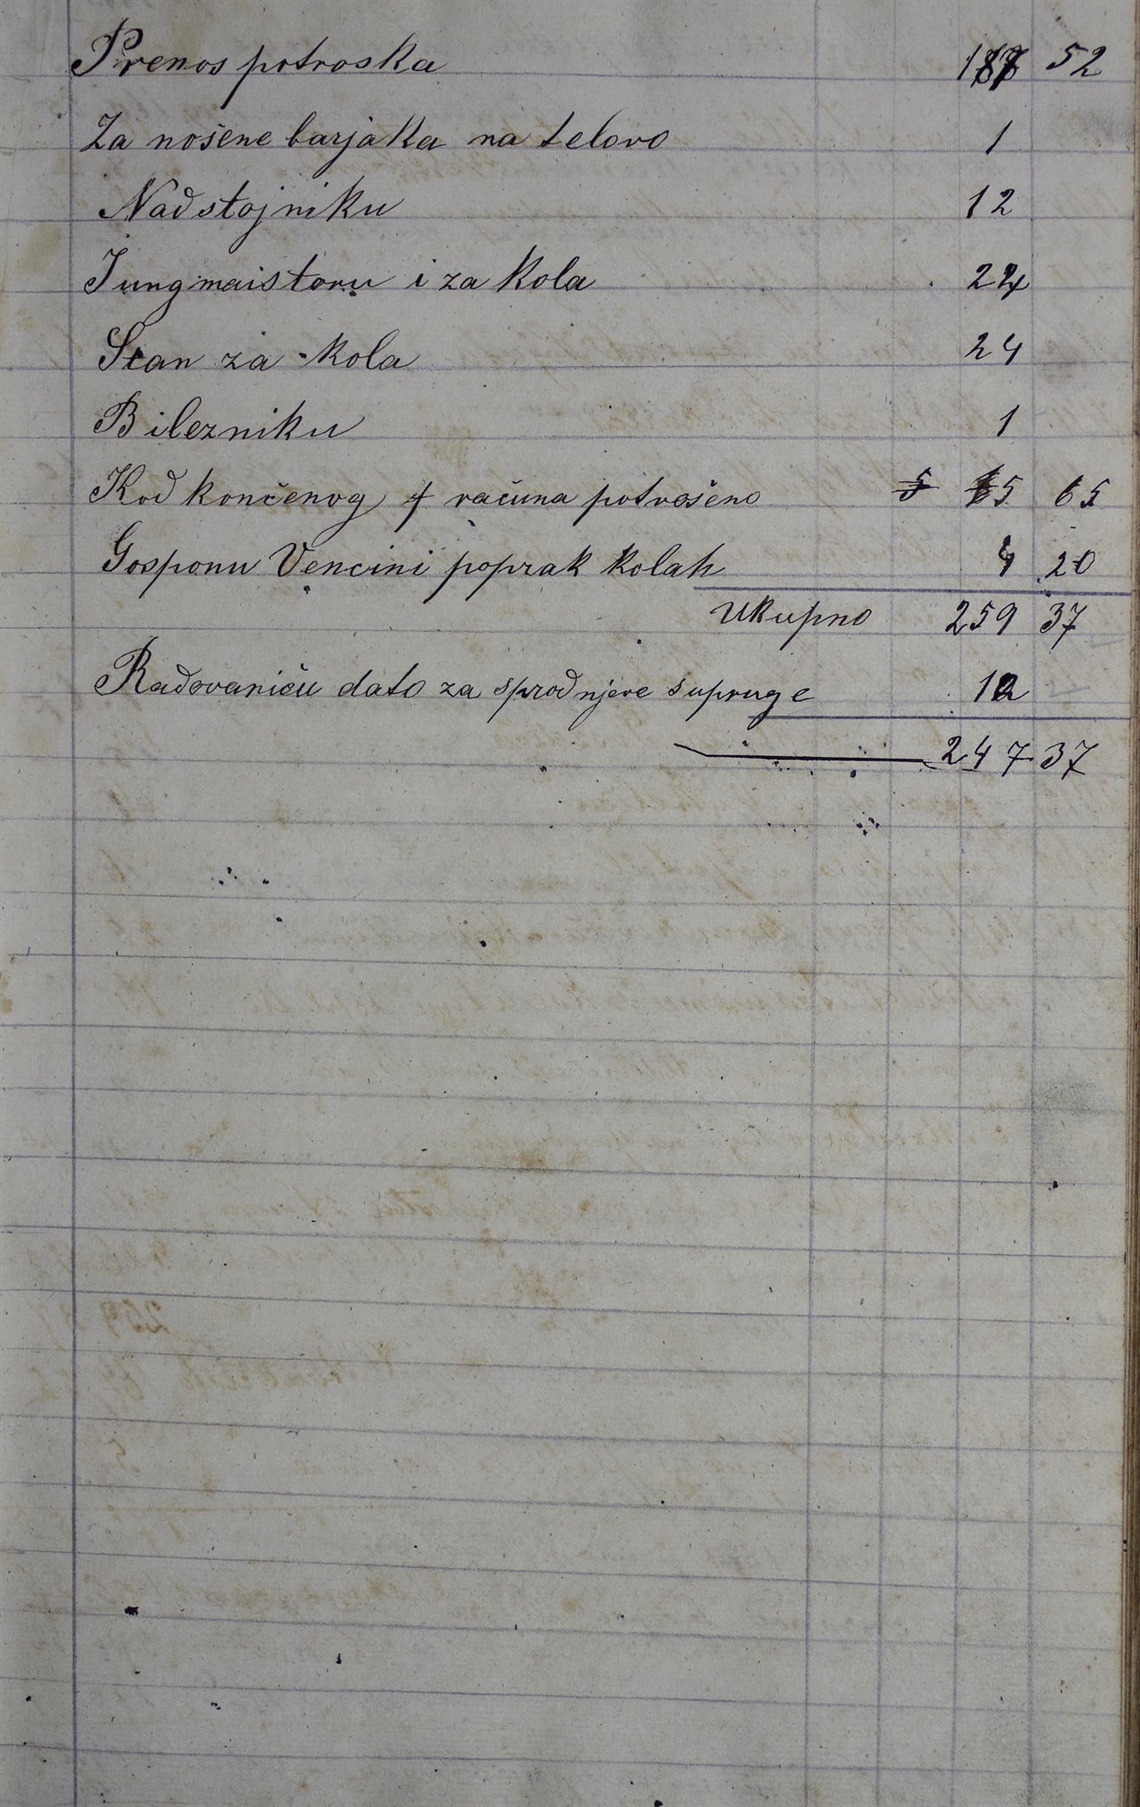 Prenos potroska 187 52
Za nošene barjaka na telovo 1
Nadstojniku 12
Jungmaistoru i za kola 24
Stan za kola 24
Bilezniku 1
Kod končenog računa potrošeno 5 65
Gosponu Vencini poprak kolah 4 20
Ukupno 259 37
Radovaniću dato za sprodnjeve supruge 12
247 37